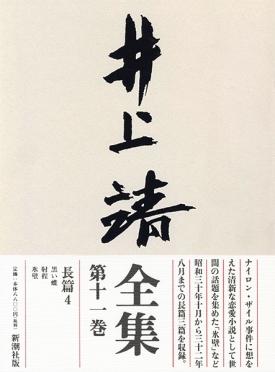 井上靖
全集
第十一巻
ナイロン・ザイル事件に想を
えた清新な恋愛小説として世
間の話題を集めた「氷壁」など
昭和三十年十月から三十二年
八月までの長篇三篇を収録。
長篇4
黒い蝶
射程
氷壁
新潮社版